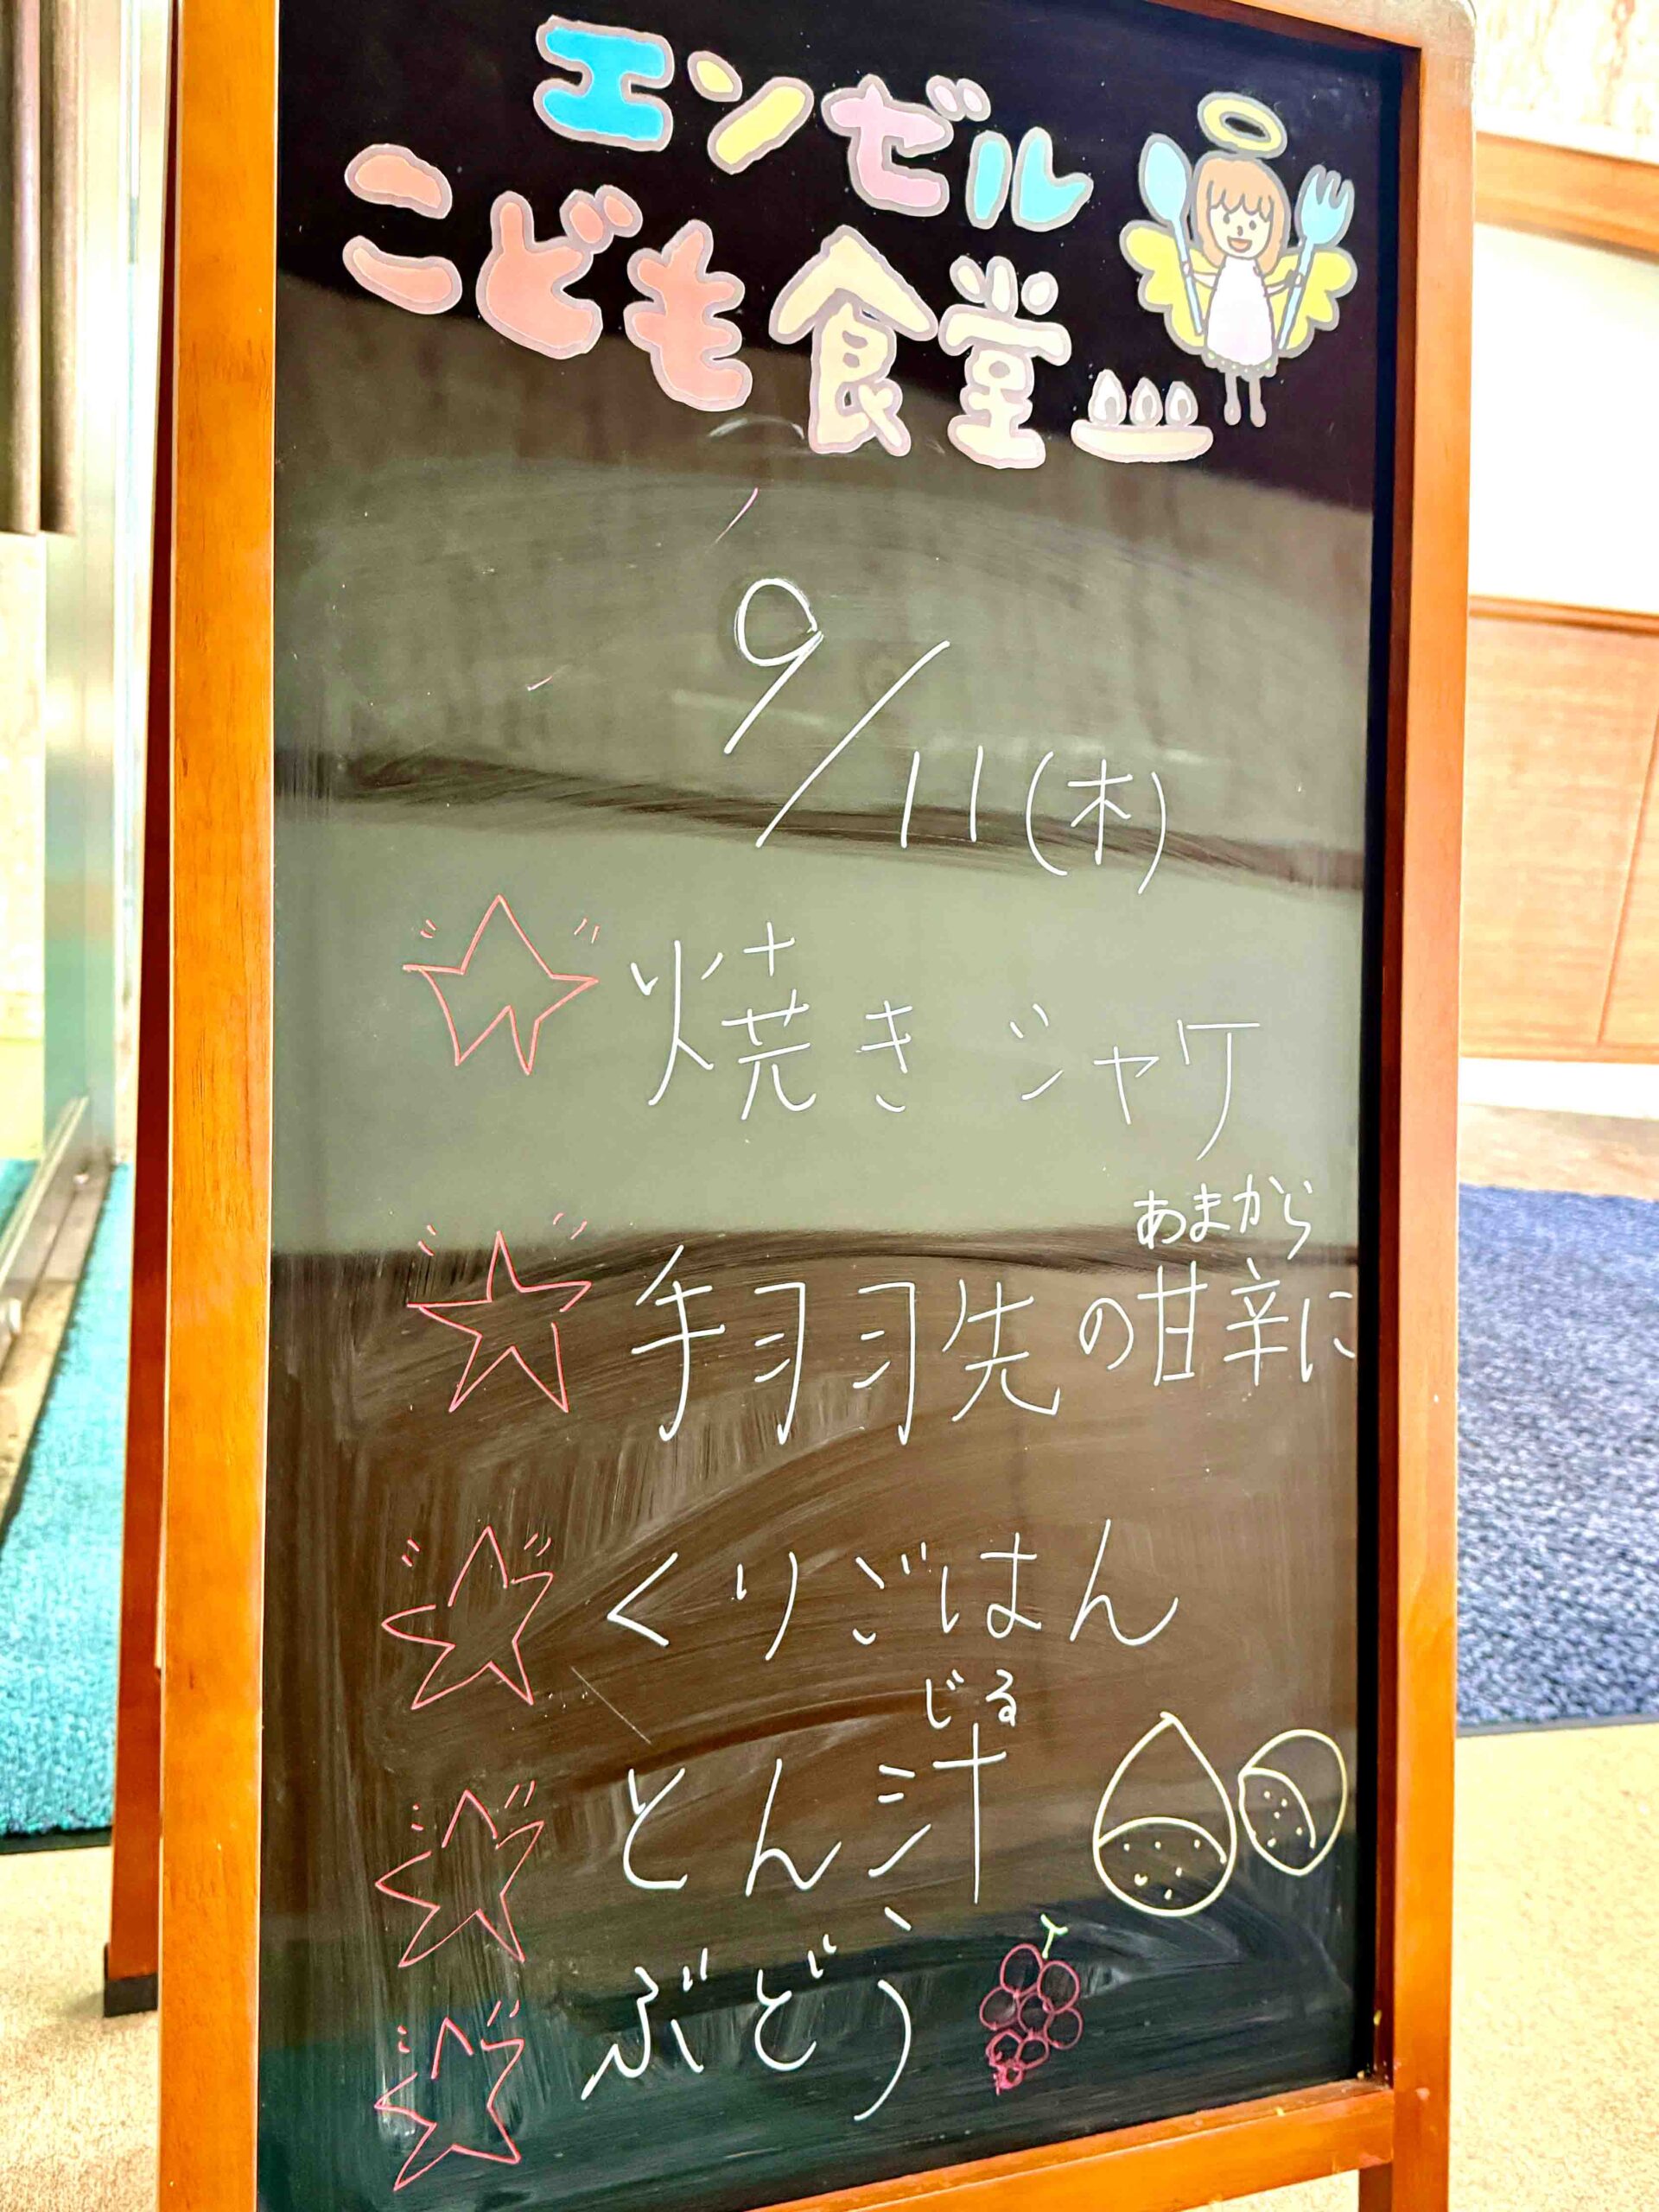 エンゼル
こども食堂
9/11(木)
焼き シャケ
あまから
手羽先の甘辛に
くりごはん
じる
とん汁
ぶどう